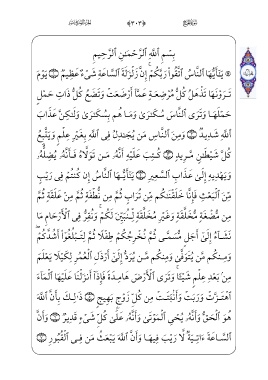 بِسْمِ ٱللَّهِ ٱلرَّحْمَٰنِ ٱلرَّحِيمِ
۞ يَٰٓأَيُّهَا ٱلنَّاسُ ٱتَّقُوا۟ رَبَّكُمْ إِنَّ زَلْزَلَةَ ٱلسَّاعَةِ شَىْءٌ عَظِيمٌ ۝ يَوْمَ
تَرَوْنَهَا تَذْهَلُ كُلُّ مُرْضِعَةٍ عَمَّآ أَرْضَعَتْ وَتَضَعُ كُلُّ ذَاتِ حَمْلٍ
حَمْلَهَا وَتَرَى ٱلنَّاسَ سُكَٰرَىٰ وَمَا هُم بِسُكَٰرَىٰ وَلَٰكِنَّ عَذَابَ
ٱللَّهِ شَدِيدٌ ۝ وَمِنَ ٱلنَّاسِ مَن يُجَٰدِلُ فِى ٱللَّهِ بِغَيْرِ عِلْمٍ وَيَتَّبِعُ
كُلَّ شَيْطَٰنٍ مَّرِيدٍ ۝ كُتِبَ عَلَيْهِ أَنَّهُۥ مَن تَوَلَّاهُ فَأَنَّهُۥ يُضِلُّهُۥ
وَيَهْدِيهِ إِلَىٰ عَذَابِ ٱلسَّعِيرِ ۝ يَٰٓأَيُّهَا ٱلنَّاسُ إِن كُنتُمْ فِى رَيْبٍ
مِّنَ ٱلْبَعْثِ فَإِنَّا خَلَقْنَٰكُم مِّن تُرَابٍ ثُمَّ مِن نُّطْفَةٍ ثُمَّ مِنْ عَلَقَةٍ ثُمَّ
مِن مُّضْغَةٍ مُّخَلَّقَةٍ وَغَيْرِ مُخَلَّقَةٍ لِّنُبَيِّنَ لَكُمْ ۚ وَنُقِرُّ فِى ٱلْأَرْحَامِ مَا
نَشَآءُ إِلَىٰٓ أَجَلٍ مُّسَمًّى ثُمَّ نُخْرِجُكُمْ طِفْلًا ثُمَّ لِتَبْلُغُوٓا۟ أَشُدَّكُمْ ۖ
وَمِنكُم مَّن يُتَوَفَّىٰ وَمِنكُم مَّن يُرَدُّ إِلَىٰٓ أَرْذَلِ ٱلْعُمُرِ لِكَيْلَا يَعْلَمَ
مِنۢ بَعْدِ عِلْمٍ شَيْـًٔا ۚ وَتَرَى ٱلْأَرْضَ هَامِدَةً فَإِذَآ أَنزَلْنَا عَلَيْهَا ٱلْمَآءَ
ٱهْتَزَّتْ وَرَبَتْ وَأَنۢبَتَتْ مِن كُلِّ زَوْجٍۭ بَهِيجٍ ۝ ذَٰلِكَ بِأَنَّ ٱللَّهَ
هُوَ ٱلْحَقُّ وَأَنَّهُۥ يُحْىِ ٱلْمَوْتَىٰ وَأَنَّهُۥ عَلَىٰ كُلِّ شَىْءٍ قَدِيرٌ ۝ وَأَنَّ
ٱلسَّاعَةَ ءَاتِيَةٌ لَّا رَيْبَ فِيهَا وَأَنَّ ٱللَّهَ يَبْعَثُ مَن فِى ٱلْقُبُورِ ۝